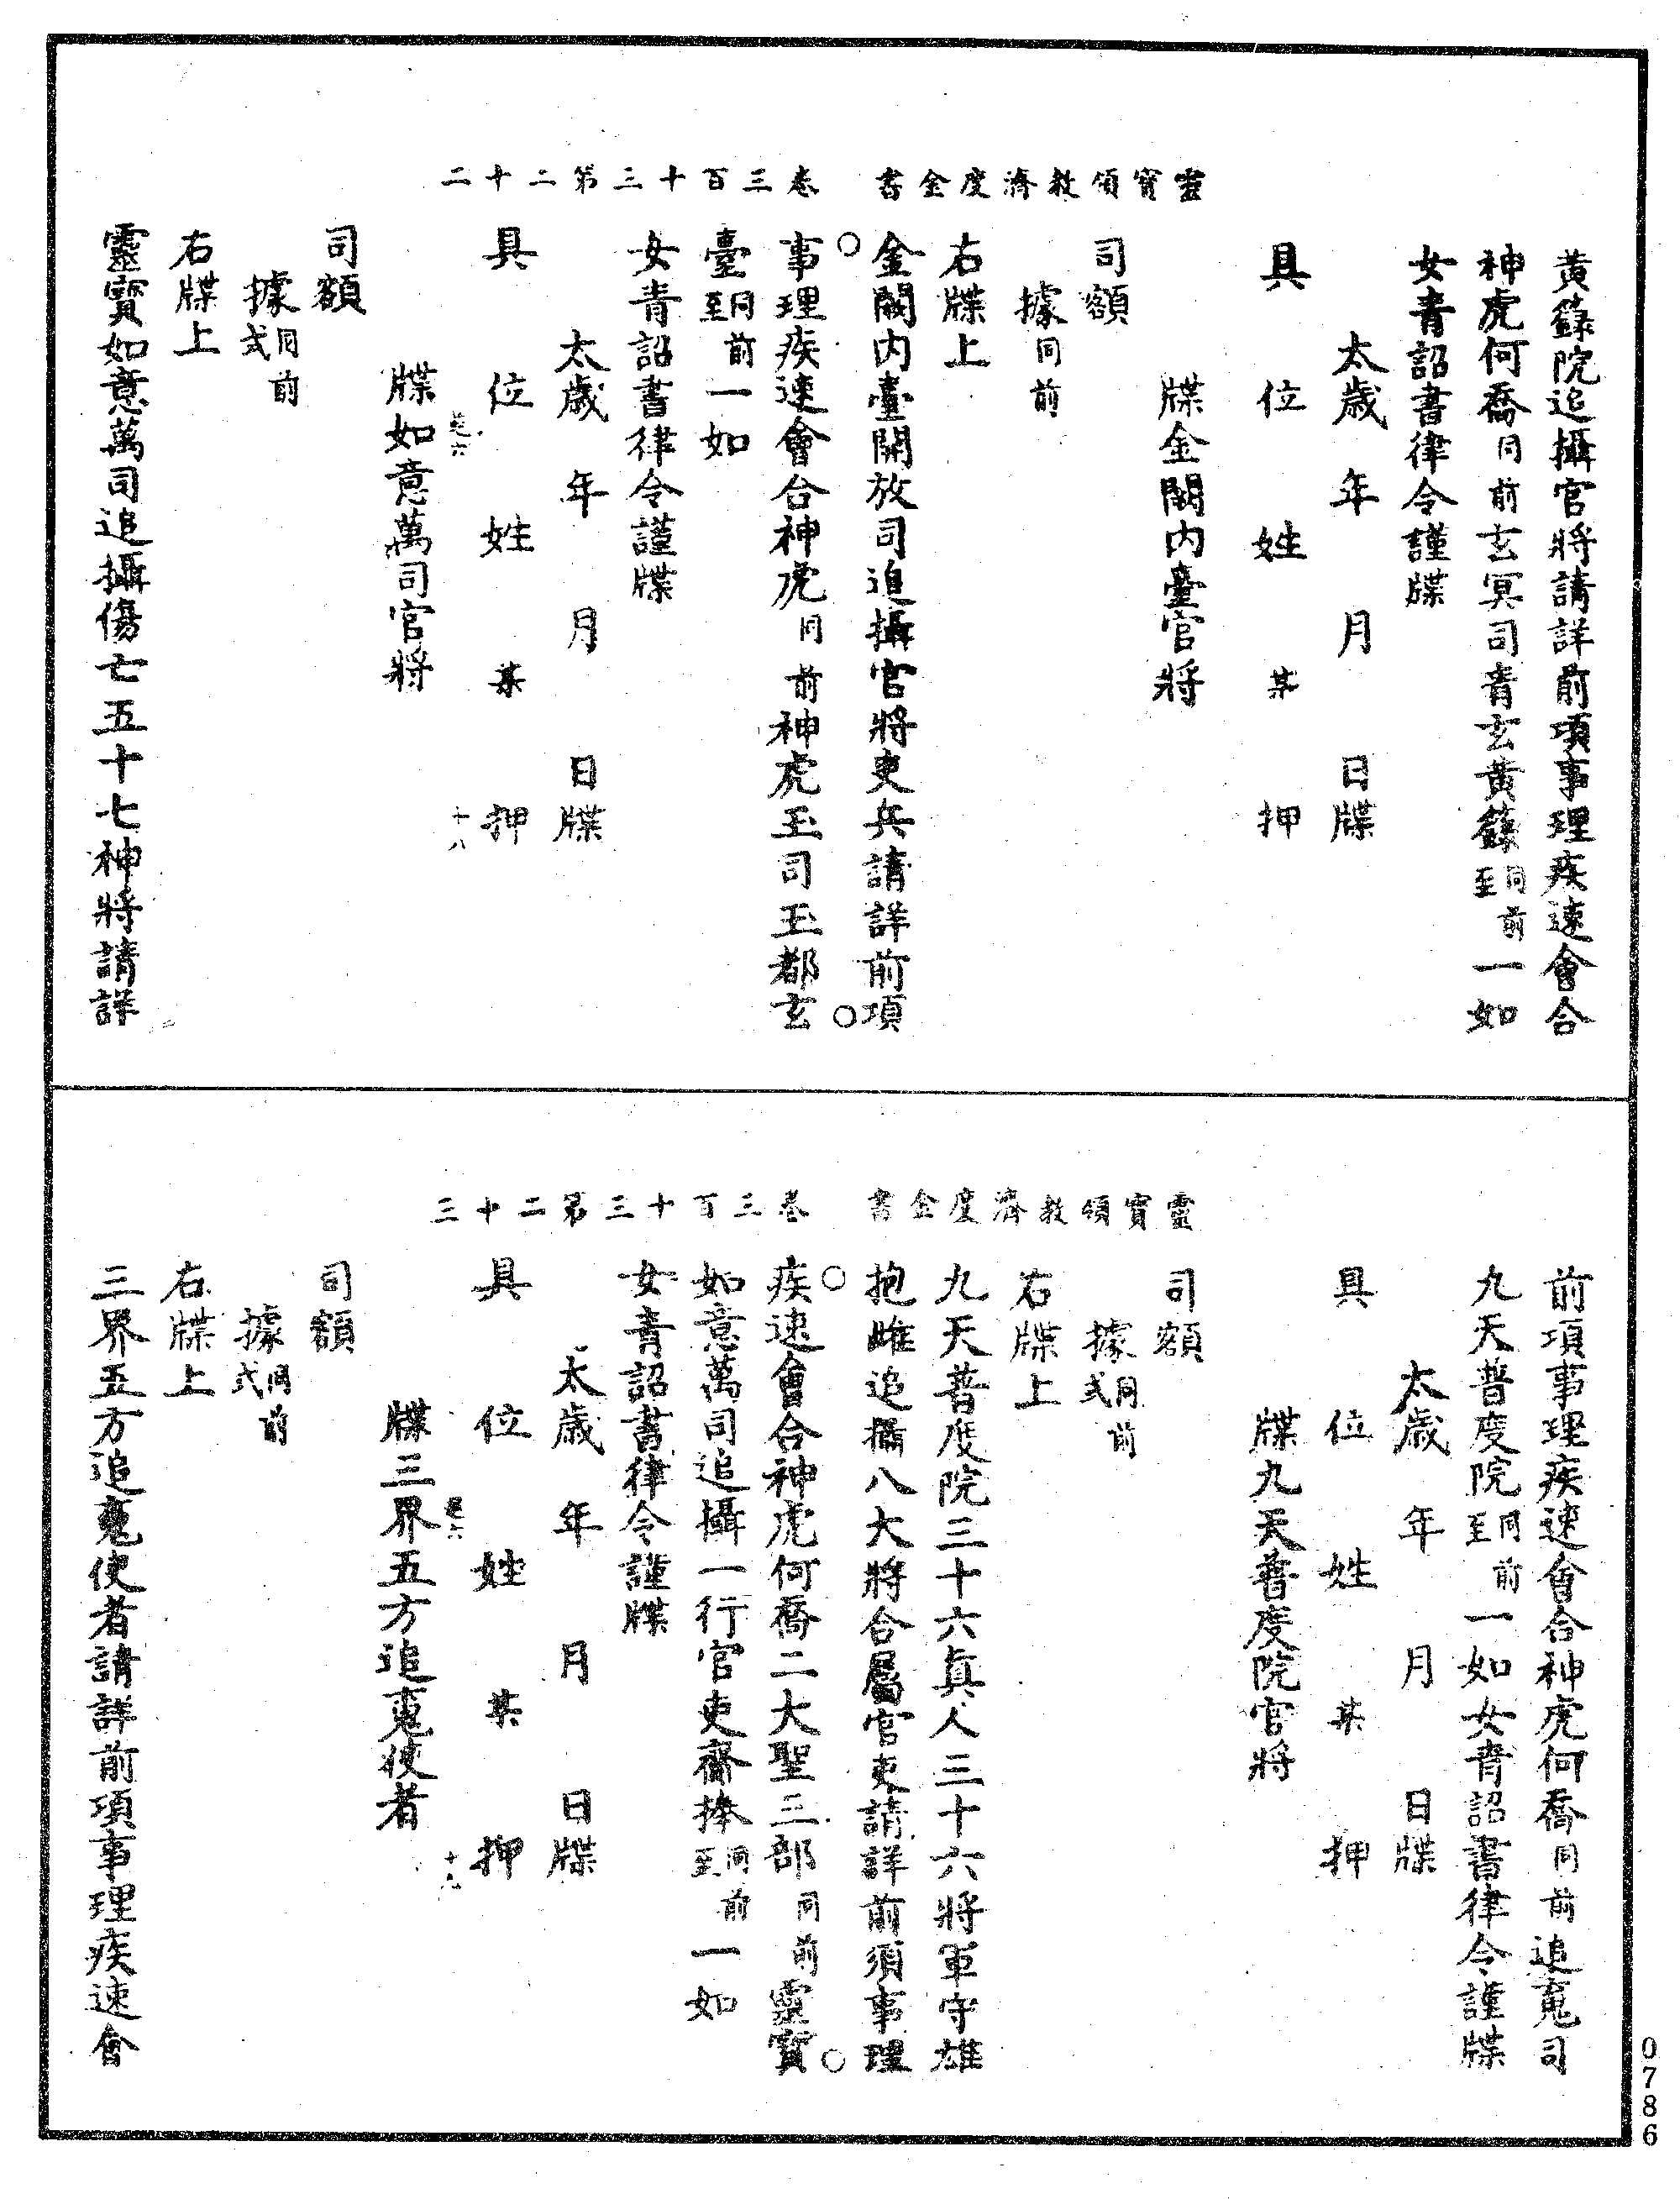 靈寶領教濟度金書　卷三百十三第二十二
黃籙院追攝官將請詳前項事理疾速會合
神虎何喬同前玄冥司青玄黃籙至同前一如
女青詔書律令謹牒
太歲　年　月　日牒
具　位　姓　某　押
牒金闕內臺官將
司額
據同前
右牒上
金闕內臺開放司追攝官將吏兵請詳前項
事理疾速會合神虎同前神虎玉司玉都玄
臺至同前一如
女青詔書律令謹牒
太歲　年　月　日牒
具　位　姓　某　押
十八
牒如意萬司官將
司額
據同前式
右牒上
靈寶如意萬司追攝傷亡五十七神將請詳
靈寶領教濟度金書　卷三百十三第二十三
前項事理疾速會合神虎何喬同前追䰟司
九天普度院至同前一如女青詔書律令謹牒
太歲　年　月　日牒
具　位　姓　某　押
牒九天普度院官將
司額
據同前式
右牒上
九天普度院三十六真人三十六將軍守雄
抱雌追攝八大將合屬官吏請詳前須事理
疾速會合神虎何喬二大聖三部同前靈寶
如意萬司追攝一行官吏齋捧至同前一如
女青詔書律令謹牒
太歲　年　月　日牒
具　位　姓　某　押
十九
牒三界五方追䰟使者
司額
據同前式
右牒上
三界五方追䰟使者請詳前項事理疾速會
0786